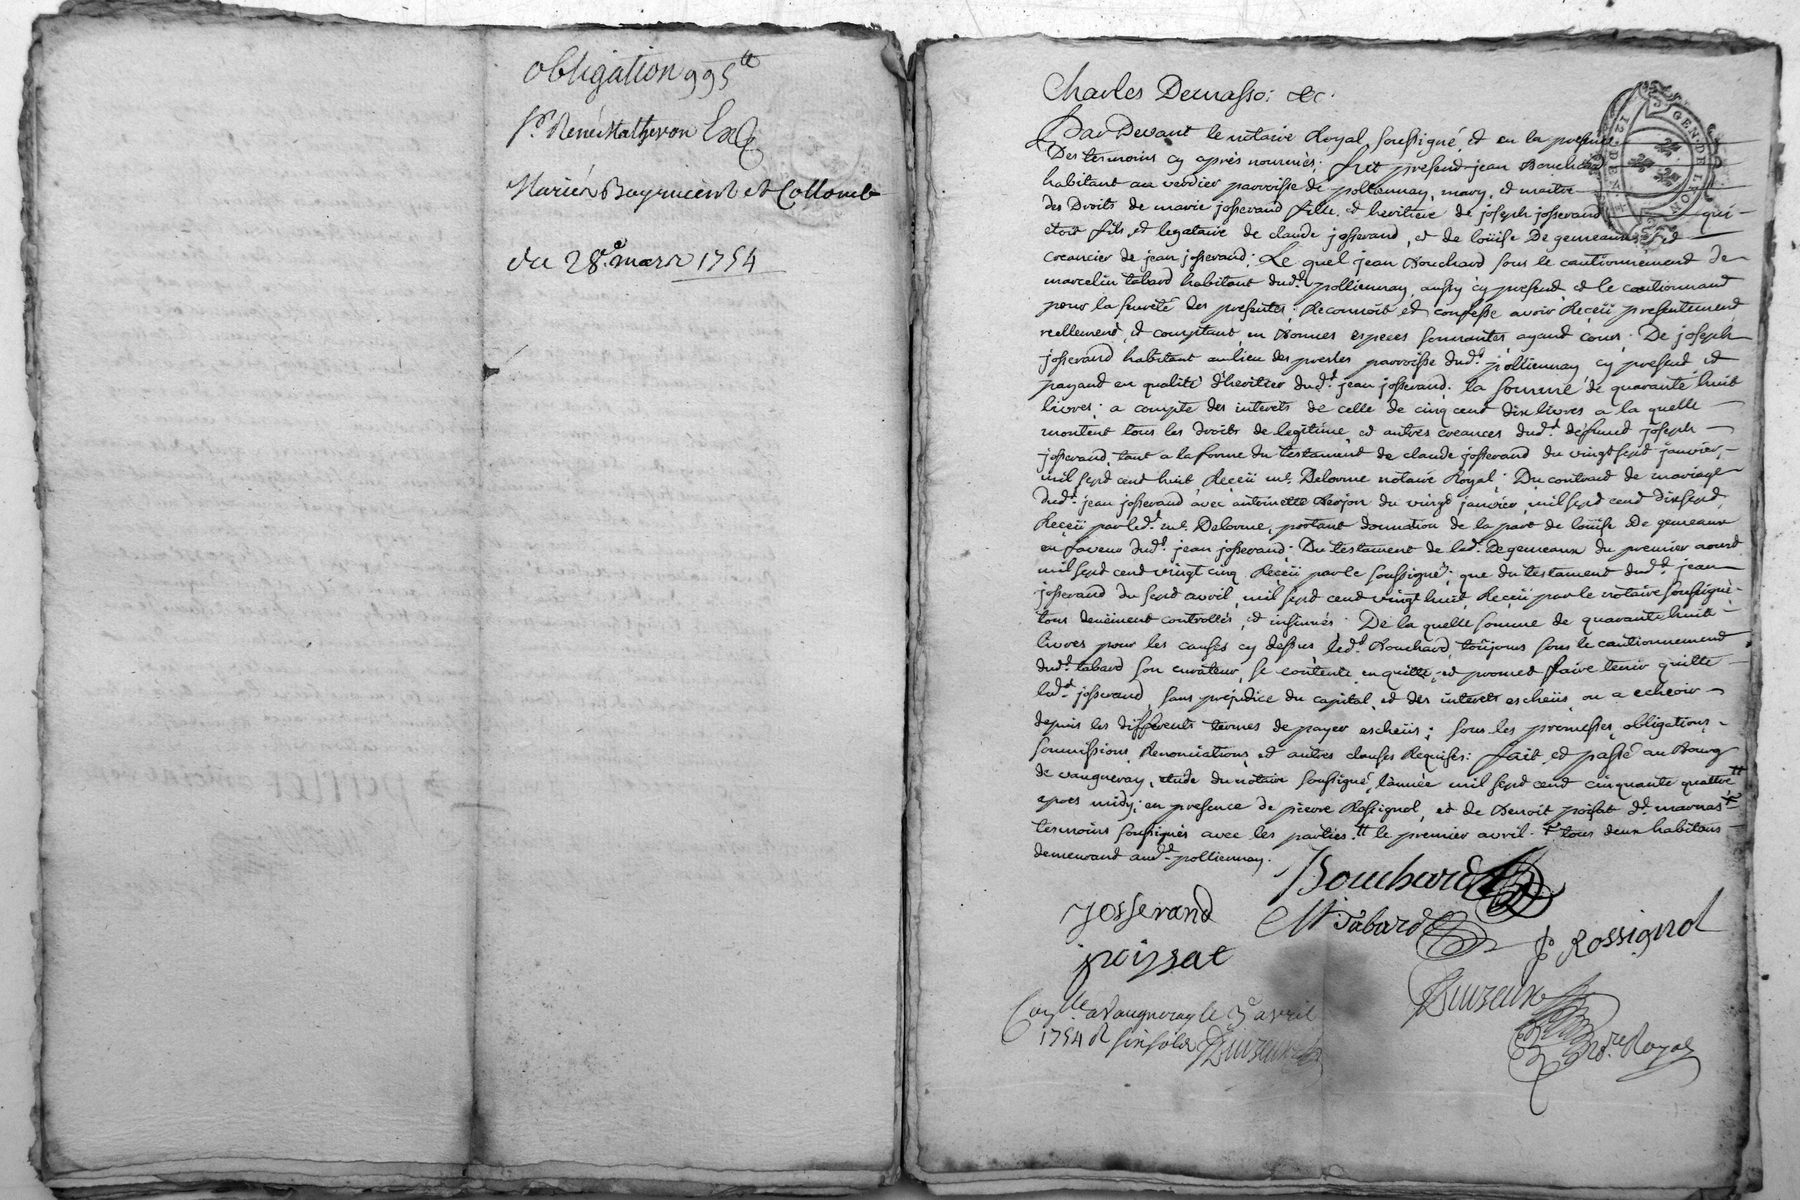 obligation 995 tt
Sr René Matheron
Mariés Boyrivient et Collomb
du 28e. mars 1754
Charles Dernasso: &c.
GEN. DE LYON
12. DEN.
Par Devant le notaire Royal soussigné, et en la presence
Des temoins cy après nommés; fut present jean Bouchard
habitant au verdier parroisse de polliennay, mary, et maitre
des Droits de marie josserand fille, et heritiere de joseph josserand qui
etoit fils, et legataire de claude josserand, et de loüise De gemeaux, et
creancier de jean josserand; Le quel jean Bouchard sous le cautionnement de
marcelin tabard habitant dudt. polliennay, aussy cy present et le cautionnant
pour la seureté des presentes; Reconnoit et confesse avoir Receü presentement
reellement, et comptant, en Bonnes especes sonnantes, ayant cours; De joseph
josserand habitant au lieu des presles parroisse dudt. polliennay, cy present et
payant en qualité d'heritier dudt. jean josserand; la somme de quarante huit
livres; a compte des interets de celle de cinq cent dix livres a la quelle
montent tous les droits de legitime, et autres creances dudt. defunt joseph
josserand, tant a la forme du testament de claude josserand du vingt sept janvier,
mil sept cent huit Receü me. Delorme notaire Royal; Du contract de mariage
dudt. jean josserand avec antoinette Berjon du vingt janvier, mil sept cent dix sept,
Receü par ledt. me. Delorme, portant donnation de la part de loüise De gemeaux
en faveur dudt. jean josserand; Du testament de ladt. Degemeaux du premier aoust
mil sept cent vingt cinq Receü par le soussigné; que du testament dudt. jean
josserand du sept avril, mil sept cent vingt huit, Receü par le notaire soussigné
tous deüement controllés, et insinués. De la quelle somme de quarante huit
livres pour les causes cy dessus ledt. Bouchard, toûjours sous le cautionnement
dudt. tabard son curateur, se contente, en quitte, et promet faire tenir quitte
ledt. josserand, sans prejudice du capital, et des interets escheüs, ou a echeoir
depuis les differents termes de payer escheüs; sous les promesses, obligations,
soumissions, Renonciations, et autres clauses Requises: fait, et passé au Bourg
de vaugneray, etude du notaire soussigné, l'année mil sept cent cinquante quattre tt
apres midy; en presence de pierre Rossignol, et de Benoit poissat dt. marnas +
temoins soussignés avec les parties. tt le premier avril. + tous deux habitans
demeurant audt. polliennay.
Bouchard
josserand
M Tabard
P Rossignol
poissat
Duvzeure
Not.re Royal
Con.lle a Vaugneray le 3e avril
1754 R six sols Duvzeure